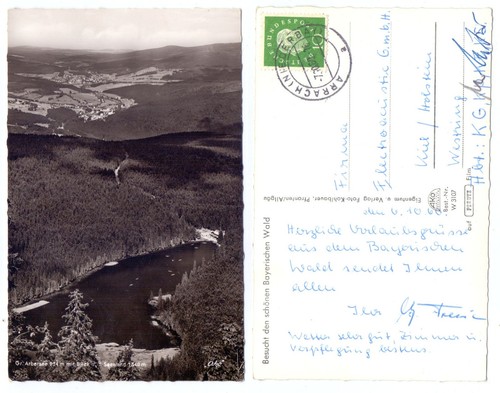 Gr. Arbersee 934 m mit Blick
DEUTSCHE BUNDESPOST
10
ARRACH
Firma
Electroacustic G.m.b.H.
Kiel / Holstein
Westring
Abt: KG
Besucht den schönen Bayerischen Wald
Eigentum u. Verlag Foto-Kohlbauer, Pfronten/Allgäu
Best.-Nr.
W 3107
auf
Film
den 6.10.60
Herzliche Urlaubsgrüsse
aus dem Bayerischen
Wald sendet Ihnen
allen
Ihr
Wetter sehr gut, Zimmer u.
Verpflegung bestens.